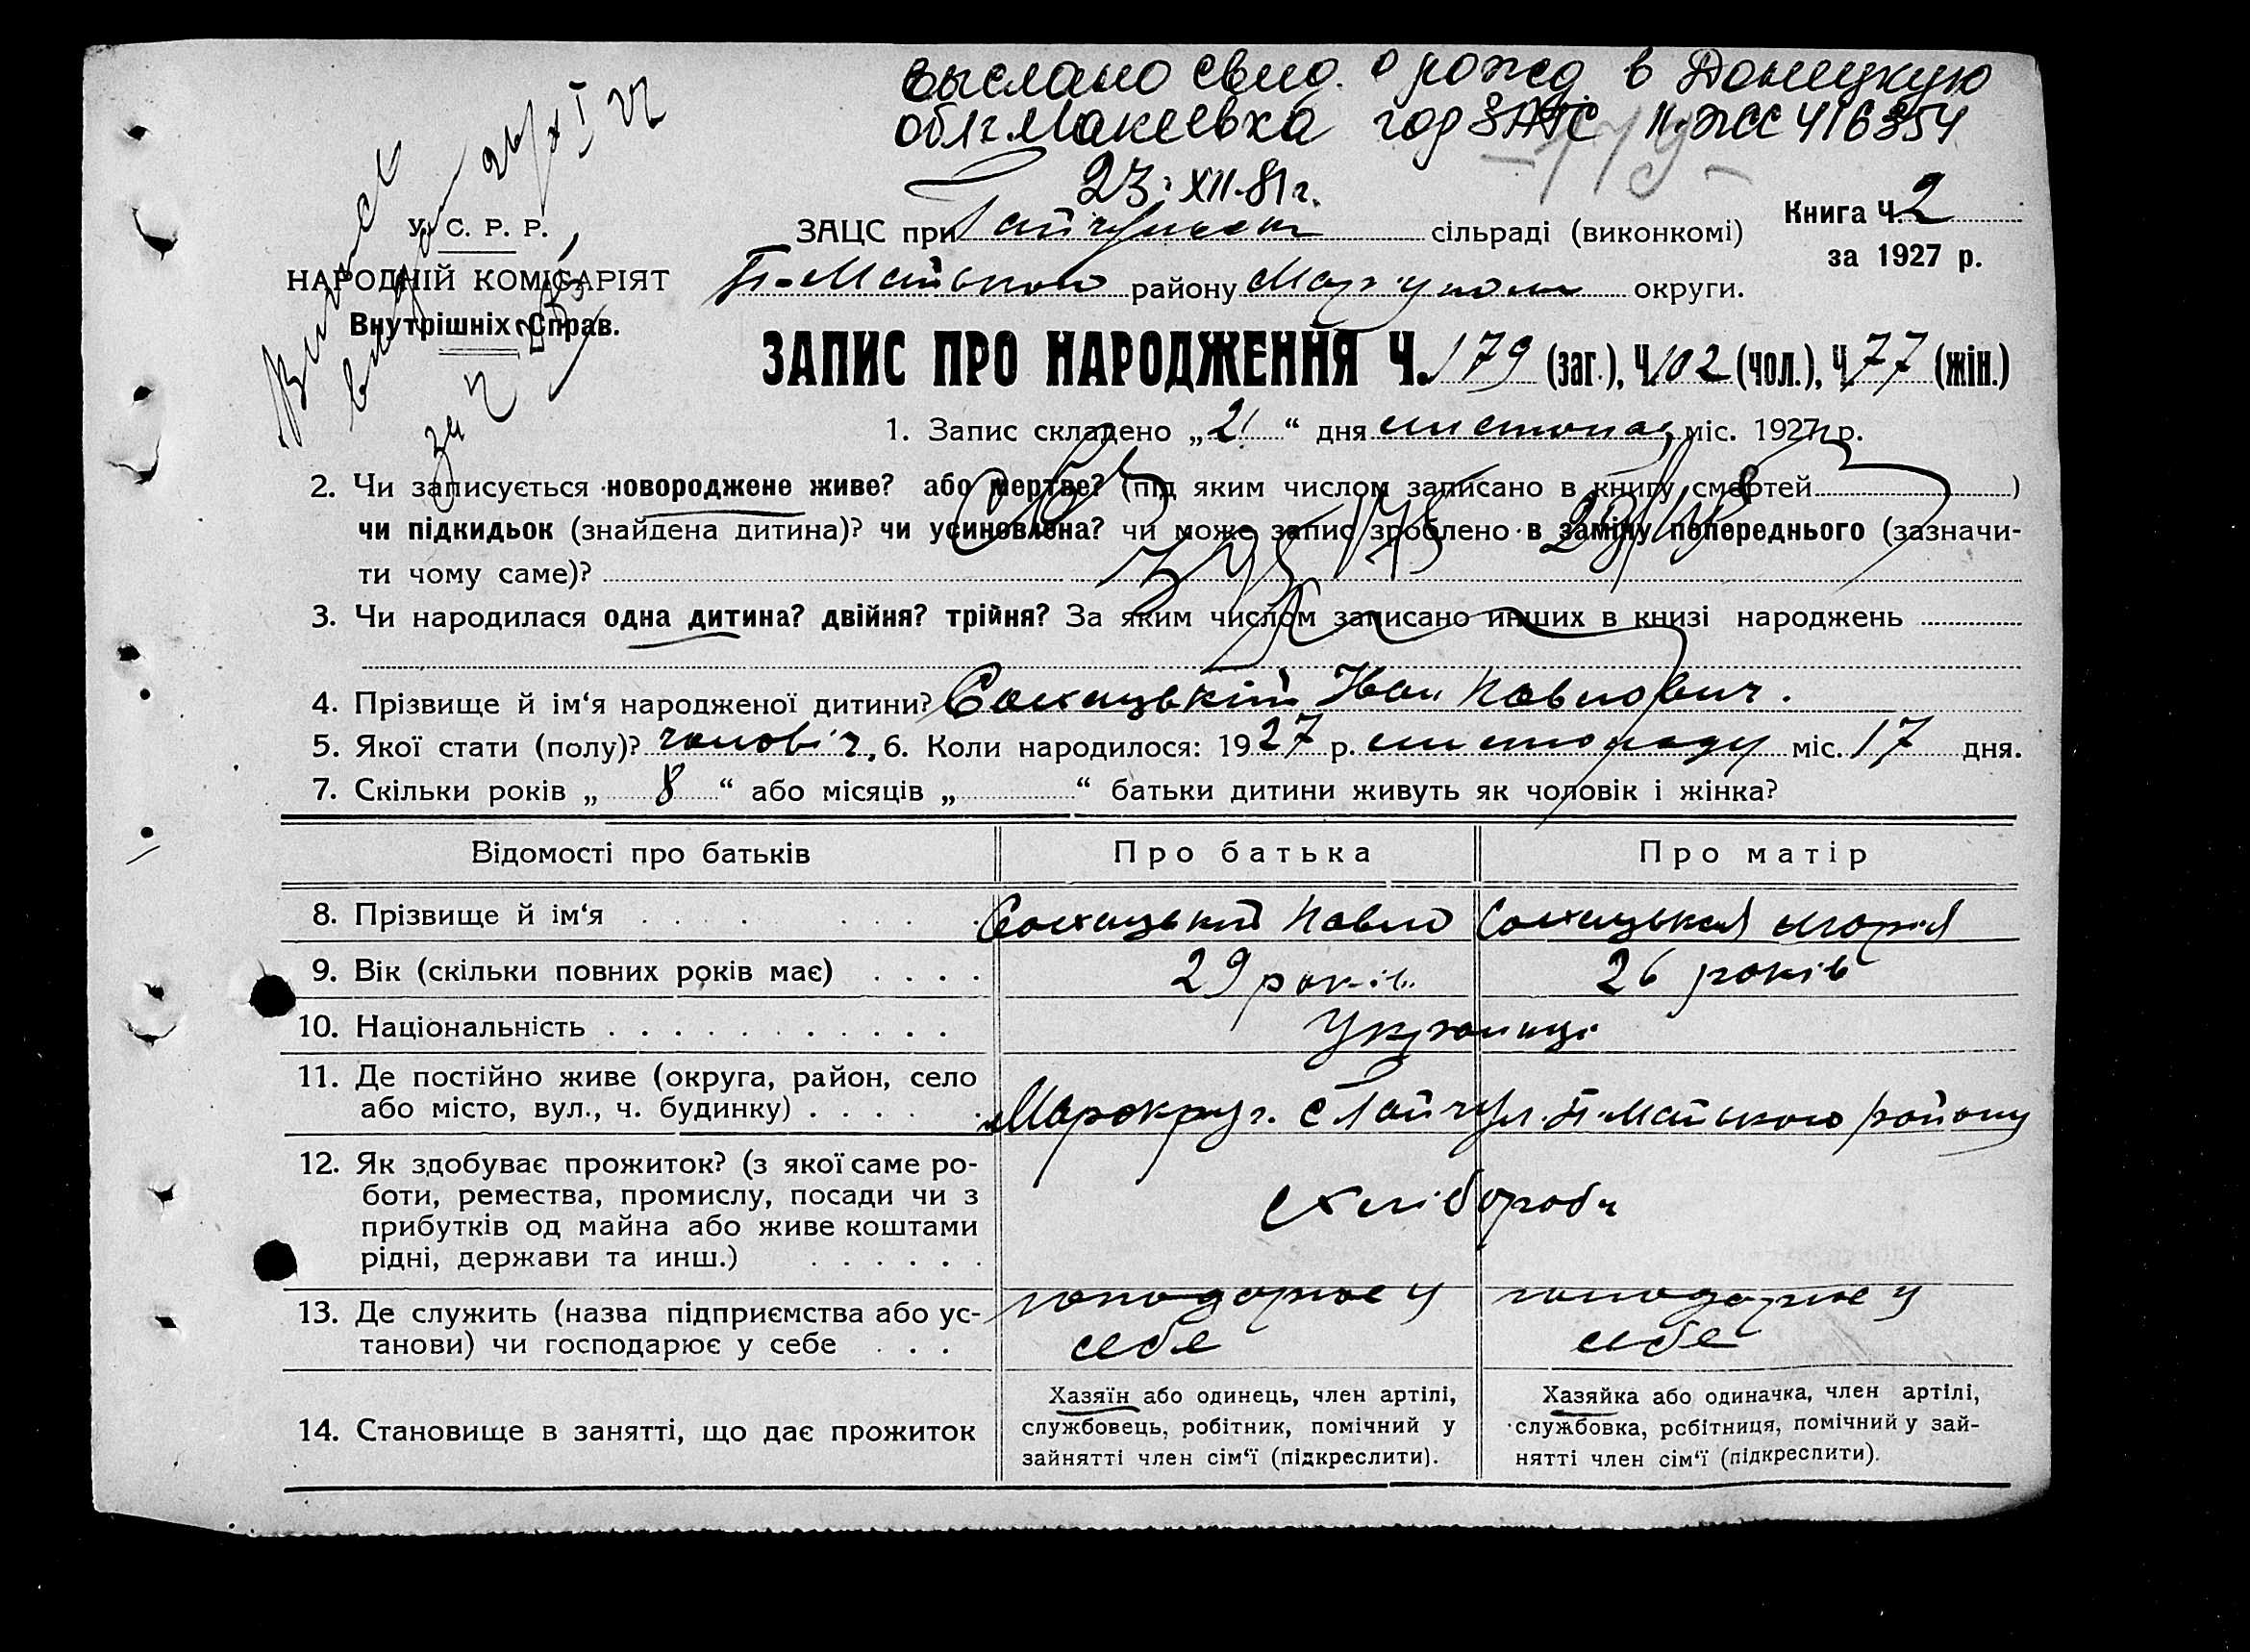 выслано свид. о рожд в Донецкую
обл г Макеевка гор ЗАГС II-ЖС 416354
23.XII.81 г.
-179-
У. С. Р. Р.
НАРОДНІЙ КОМІСАРІЯТ
Внутрішніх Справ.
ЗАЦС при Гайчульськ сільраді (виконкомі)
Книга Ч. 2
за 1927 р.
П-Майськом району Маріупольськ округи.
ЗАПИС ПРО НАРОДЖЕННЯ Ч. 179 (заг.), Ч. 102 (чол.), Ч. 77 (жін.)
1. Запис складено „21“ дня листопад міс. 1927 р.
2. Чи записується новороджене живе? або мертве? (під яким числом записано в книгу смертей )
чи підкидьок (знайдена дитина)? чи усиновлена? чи може запис зроблено в заміну попереднього (зазначи-
ти чому саме)?
3. Чи народилася одна дитина? двійня? трійня? За яким числом записано инших в книзі народжень
4. Прізвище й ім‘я народженої дитини? Іван Павлович.
5. Якої стати (полу)? чоловіч. 6. Коли народилося: 1927 р. листопаду міс. 17 дня.
7. Скільки років „ 8 “ або місяців „ “ батьки дитини живуть як чоловік і жінка?
Відомості про батьків Про батька Про матір
8. Прізвище й ім‘я Павло Марія
9. Вік (скільки повних років має) 29 років 26 років
10. Національність Українці
11. Де постійно живе (округа, район, село
або місто, вул., ч. будинку) Марокруг. с Гайчул. П-Майського району
12. Як здобуває прожиток? (з якої саме ро-
боти, ремества, промислу, посади чи з
прибутків од майна або живе коштами
рідні, держави та инш.) хлібороби
13. Де служить (назва підприємства або ус-
танови) чи господарює у себе господарює у себе господарює у себе
14. Становище в занятті, що дає прожиток
Хазяїн або одинець, член артілі,
службовець, робітник, помічний у
зайнятті член сім‘ї (підкреслити).
Хазяйка або одиначка, член артілі,
службовка, робітниця, помічний у зай-
нятті член сім‘ї (підкреслити).